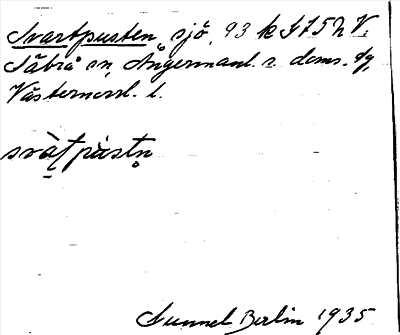 Svartpusten, sjö, 93 k I 75 h V.
Säbrå sn, Ångermanl. s. doms.
Västernorrl. l.
svàt̩pùstn̩
Gunnel Berlin 1935